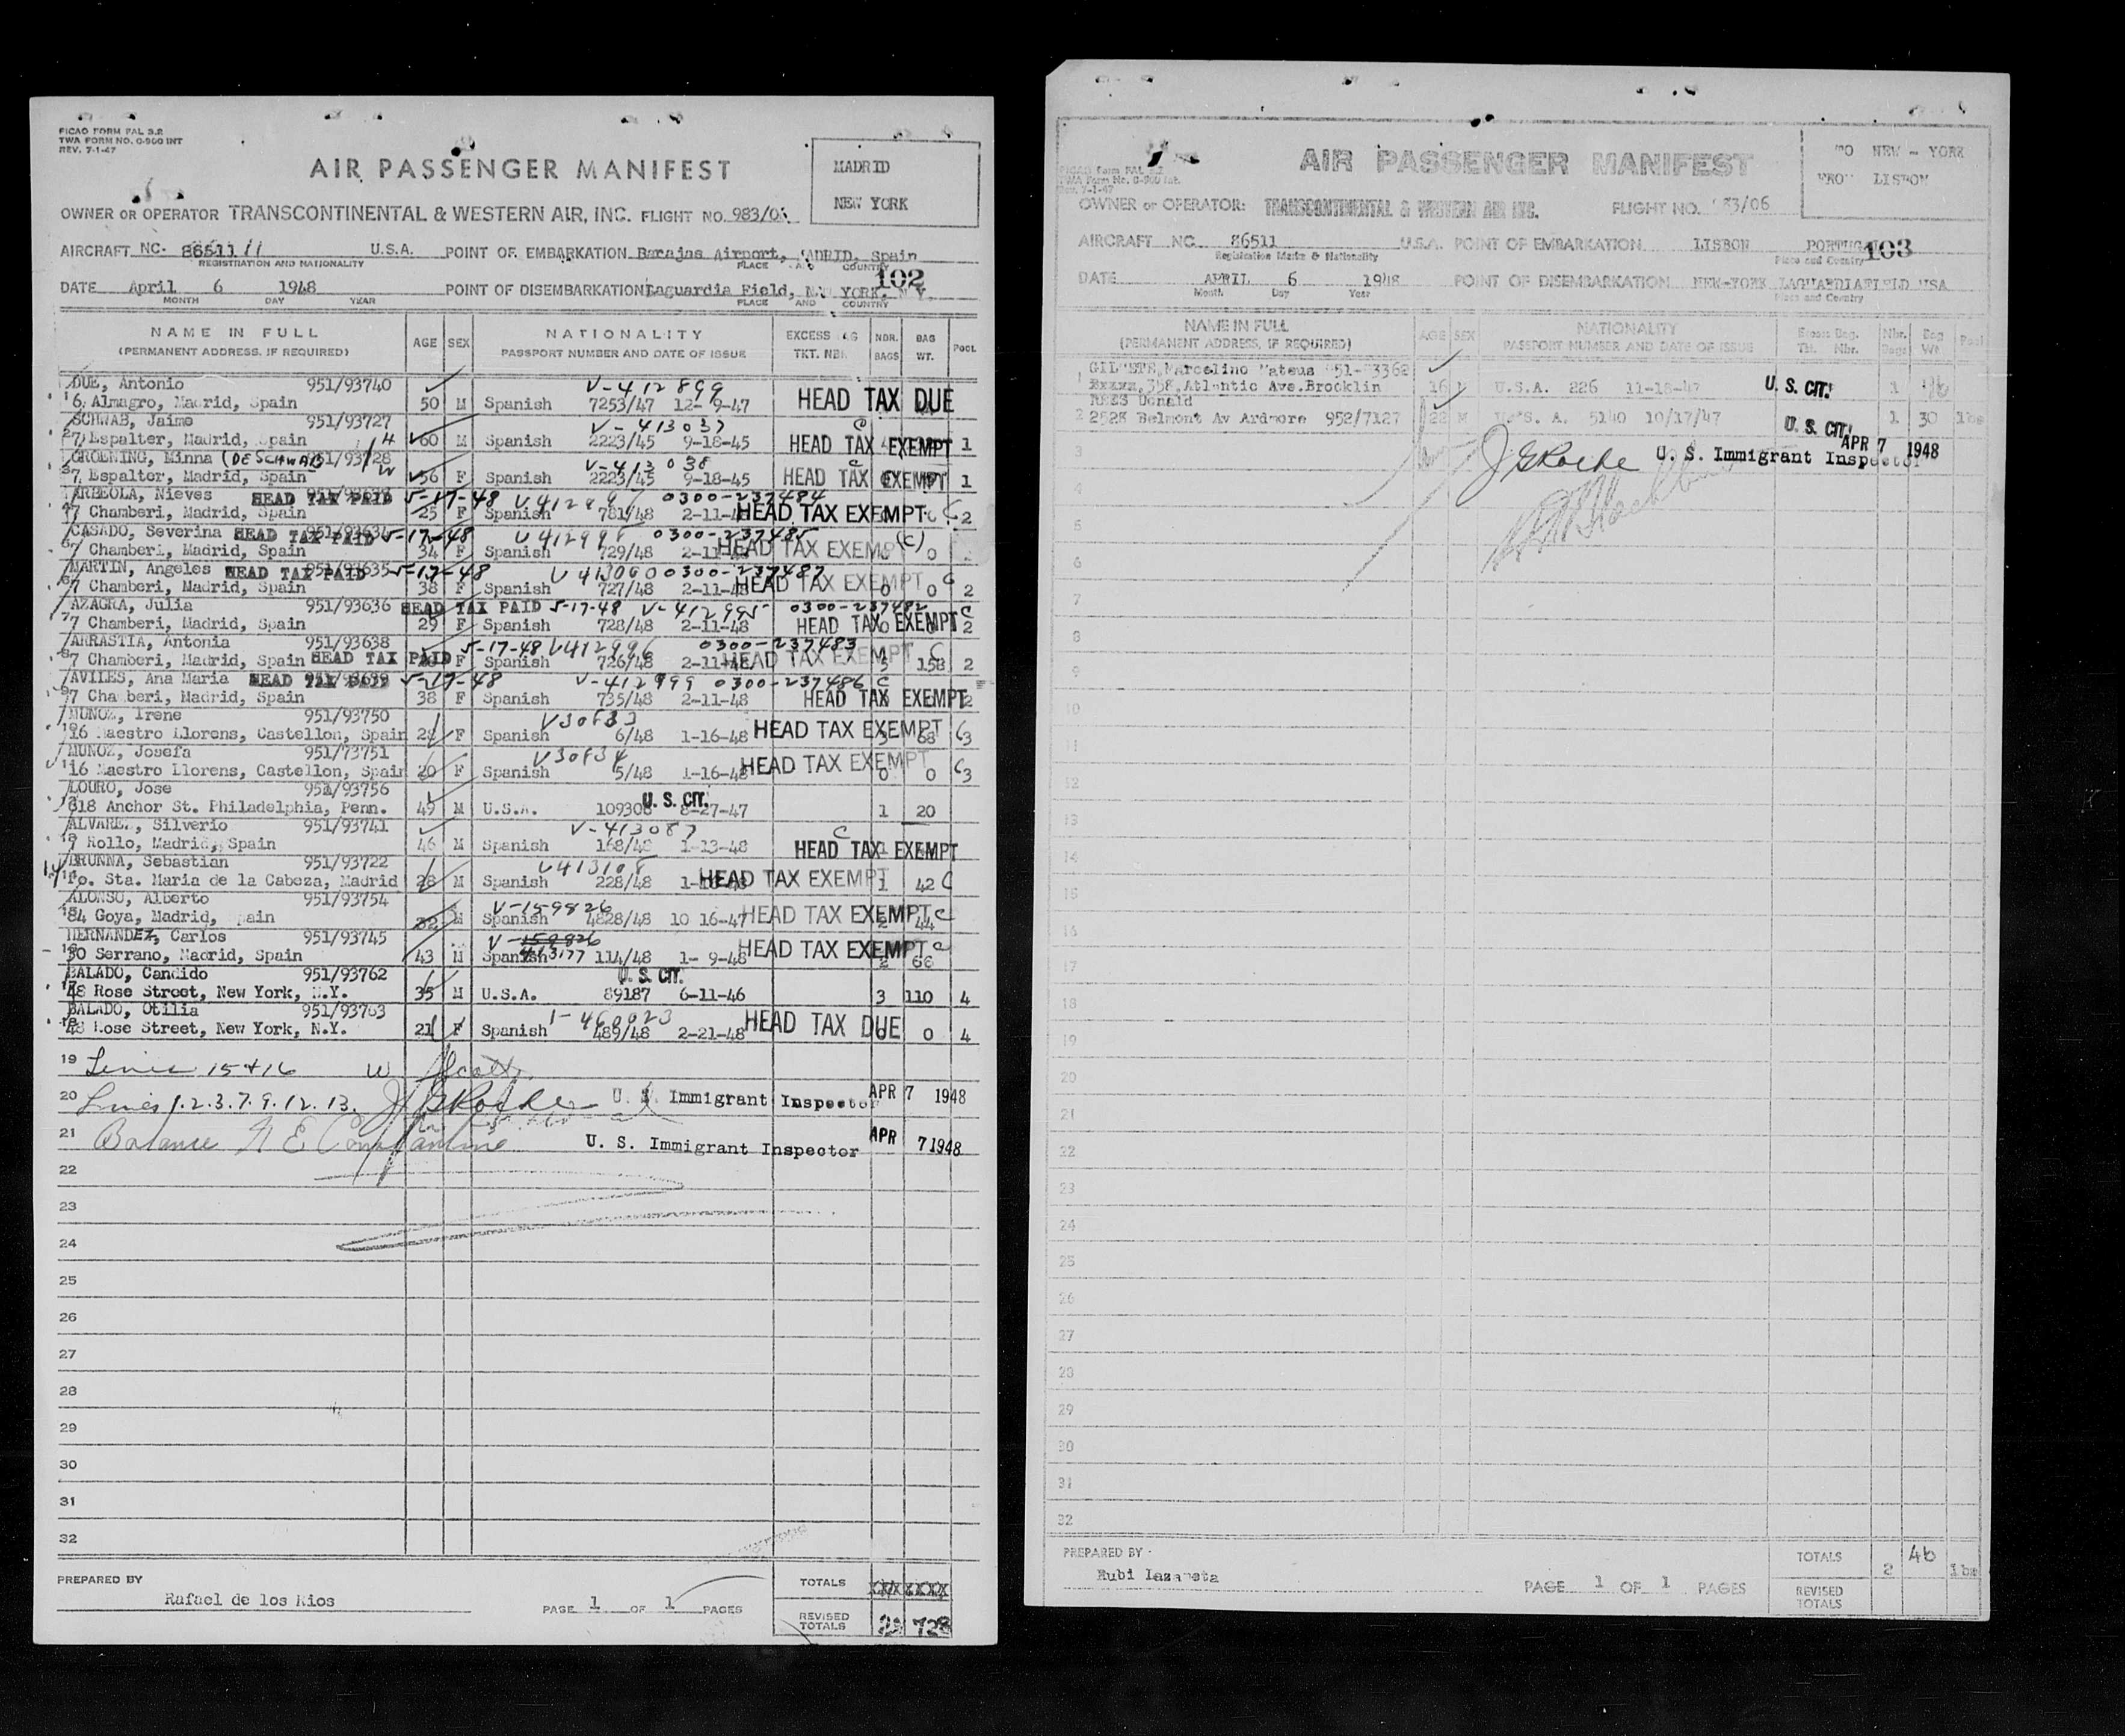 FICAO FORM PAL S.2
TWA FORM NO. O-900 INT
REV. 7-1-47
AIR PASSENGER MANIFEST
MADRID
NEW YORK
OWNER OR OPERATOR TRANSCONTINENTAL & WESTERN AIR, INC. FLIGHT NO. 983/0
AIRCRAFT NC- 86511 U.S.A. POINT OF EMBARKATION Barajas Airport, MADRID, Spain
REGISTRATION AND NATIONALITY PLACE AND COUNTRY
102
DATE April 6 1948 POINT OF DISEMBARKATION Laguardia Field, NEW YORK, N.Y.
MONTH DAY YEAR PLACE AND COUNTRY
NAME IN FULL AGE SEX NATIONALITY EXCESS BAG NBR. BAG POOL
(PERMANENT ADDRESS, IF REQUIRED) PASSPORT NUMBER AND DATE OF ISSUE TKT. NBR. BAGS WT.
DUE, Antonio 951/93740 V-412899
1 6, Almagro, Madrid, Spain 50 M Spanish 7253/47 12- 9-47 HEAD TAX DUE
SCHWAB, Jaime 951/93727 V-413037 C
2 7, Espalter, Madrid, Spain H 60 M Spanish 2223/45 9-18-45 HEAD TAX EXEMPT 1
GROENING, Minna (DE SCHWAB) 951/93728 V-413038 C
3 7, Espalter, Madrid, Spain W 56 F Spanish 2223/45 9-18-45 HEAD TAX EXEMPT 1
ARBEOLA, Nieves HEAD TAX PAID 5-17-48 0300-237484
4 7 Chamberi, Madrid, Spain 25 F Spanish 781/48 2-11-48 HEAD TAX EXEMPT C 2
CASADO, Severina HEAD TAX PAID 5-17-48 V412998 0300-237485
5 7 Chamberi, Madrid, Spain 34 F Spanish 729/48 2-11-48 HEAD TAX EXEMPT (C) 0
MARTIN, Angeles HEAD TAX PAID 951/93635 5-17-48 V413000 0300-237487
6 7 Chamberi, Madrid, Spain 38 F Spanish 727/48 2-11-48 HEAD TAX EXEMPT 0 0 C 2
AZAGRA, Julia 951/93636 HEAD TAX PAID 5-17-48 V-412995 0300-237482 C
7 7 Chamberi, Madrid, Spain 29 F Spanish 728/48 2-11-48 HEAD TAX EXEMPT 2
ARRASTIA, Antonia 951/93638 5-17-48 V412996 0300-237483 C
8 7 Chamberi, Madrid, Spain HEAD TAX PAID F Spanish 726/48 2-11-48 HEAD TAX EXEMPT 5 158 2
AVILES, Ana Maria HEAD TAX PAID 951/93639 5-17-48 V-412999 0300-237486 C
9 7 Chamberi, Madrid, Spain 38 F Spanish 735/48 2-11-48 HEAD TAX EXEMPT 2
MUNOZ, Irene 951/93750 V30833
10 16 Maestro Llorens, Castellon, Spain F Spanish 6/48 1-16-48 HEAD TAX EXEMPT 68 C 3
MUNOZ, Josefa 951/73751 V30834
11 16 Maestro Llorens, Castellon, Spain 20 F Spanish 5/48 1-16-48 HEAD TAX EXEMPT 0 0 C 3
LOURO, Jose 951/93756 U. S. CIT.
12 618 Anchor St. Philadelphia, Penn. 49 M U.S.A. 109308 8-27-47 1 20
ALVAREZ, Silverio 951/93741 V-413087 C
13 7 Rollo, Madrid, Spain 46 M Spanish 168/48 1-13-48 HEAD TAX EXEMPT
BRUNNA, Sebastian 951/93722 V413108
14 Po. Sta. Maria de la Cabeza, Madrid 28 M Spanish 228/48 HEAD TAX EXEMPT 1 42 C
ALONSO, Alberto 951/93754 V-159826
15 84 Goya, Madrid, Spain 32 M Spanish 4828/48 10 16-47 HEAD TAX EXEMPT 2 44 C
HERNANDEZ, Carlos 951/93745 V-159826
16 30 Serrano, Madrid, Spain 43 M Spanish 413177 114/48 1- 9-48 HEAD TAX EXEMPT C 2 66
BALADO, Candido 951/93762 U. S. CIT.
17 48 Rose Street, New York, N.Y. 35 M U.S.A. 89187 6-11-46 3 110 4
BALADO, Otilia 951/93763 1-460923
18 48 Rose Street, New York, N.Y. 21 F Spanish 489/48 2-21-48 HEAD TAX DUE 0 4
19 Lines 15+16 W Scott
20 Lines 1.2.3.7.9.12.13. J G Roche U. S. Immigrant Inspector APR 7 1948
21 Balance U. S. Immigrant Inspector APR 7 1948
22
23
24
25
26
27
28
29
30
31
32
PREPARED BY Rafael de los Rios
PAGE 1 OF 1 PAGES
TOTALS XXXXXXX
REVISED TOTALS 728
FICAO Form PAL S.2
TWA Form No. O-900 Int.
Rev. 7-1-47
AIR PASSENGER MANIFEST
TO NEW - YORK
FROM LISBON
OWNER or OPERATOR: TRANSCONTINENTAL & WESTERN AIR INC. FLIGHT NO. 983/06
AIRCRAFT NC 86511 U.S.A. POINT OF EMBARKATION LISBON PORTUGAL
Registration Marks & Nationality Place and Country
103
DATE APRIL 6 1948 POINT OF DISEMBARKATION NEW-YORK LAGUARDIAFIELD USA
Month Day Year Place and Country
NAME IN FULL AGE SEX NATIONALITY Excess Bag. Nbr. Bag Pool
(PERMANENT ADDRESS, IF REQUIRED) PASSPORT NUMBER AND DATE OF ISSUE Tkt. Nbr. Bags Wt
Marcelino Mateus 951-93362
Exxxx,358,Atlantic Ave.Brooklin 16 M U.S.A. 226 11-18-47 U. S. CIT! 1
REES Donald
2 2528 Belmont Av Ardmore 952/7127 22 M U.S. A. 5140 10/17/47 U. S. CIT! 1 30 lbs
3 J G Roche U. S. Immigrant Inspector APR 7 1948
4
5
6
7
8
9
10
11
12
13
14
15
16
17
18
19
20
21
22
23
24
25
26
27
28
29
30
31
32
PREPARED BY
Rubi Lazaneta
PAGE 1 OF 1 PAGES
TOTALS 2 46 lbs
REVISED TOTALS